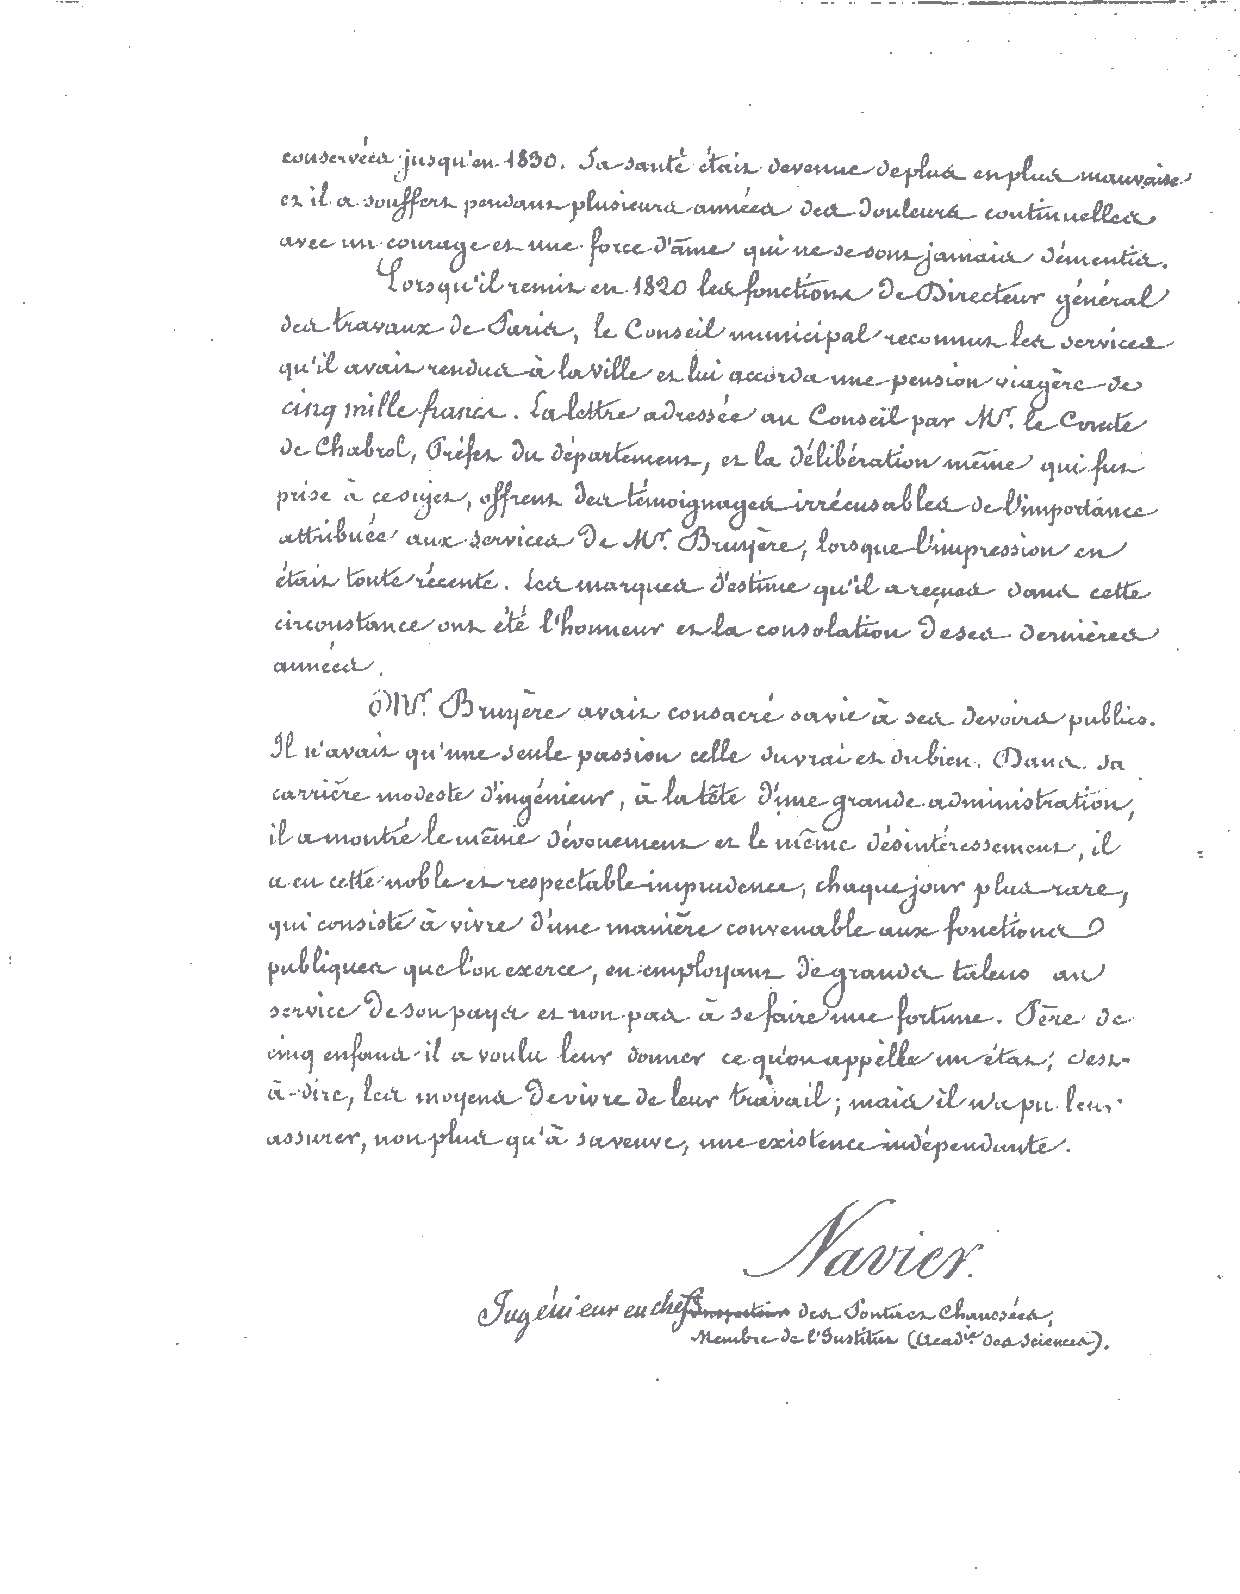 conservées jusqu'en 1830. Sa santé était devenue de plus en plus mauvaise
et il a souffert pendant plusieurs années des douleurs continuelles
avec un courage et une force d'âme qui ne se sont jamais démentis.
Lorsqu'il remit en 1820 les fonctions de Directeur général
des travaux de Paris, le Conseil municipal reconnut les services
qu'il avait rendus à la ville et lui accorda une pension viagère de
cinq mille francs. La lettre adressée au Conseil par Mr. le Comte
de Chabrol, Préfet du département, et la délibération même qui fut
prise à ce sujet, offrent des témoignages irrécusables de l'importance
attribuée aux services de Mr. Bruyère, lorsque l'impression en
était toute récente. Les marques d'estime qu'il a reçues dans cette
circonstance ont été l'honneur et la consolation de ses dernières
années.
Mr. Bruyère avait consacré sa vie à ses devoirs publics.
Il n'avait qu'une seule passion celle du vrai et du bien. Dans sa
carrière modeste d'ingénieur, à la tête d'une grande administration,
il a montré le même dévouement et le même désintéressement, il
a eu cette noble et respectable imprudence, chaque jour plus rare,
qui consiste à vivre d'une manière convenable aux fonctions
publiques que l'on exerce, en employant de grands talens au
service de son pays et non pas à se faire une fortune. Père de
cinq enfans il a voulu leur donner ce qu'on appelle un état; c'est-
à-dire, les moyens de vivre de leur travail; mais il n'a pu leur
assurer, non plus qu'à sa veuve, une existence indépendante.
Navier.
Ingénieur en chef des Ponts et Chaussées,
Membre de l'Institut (Acadie des Sciences).